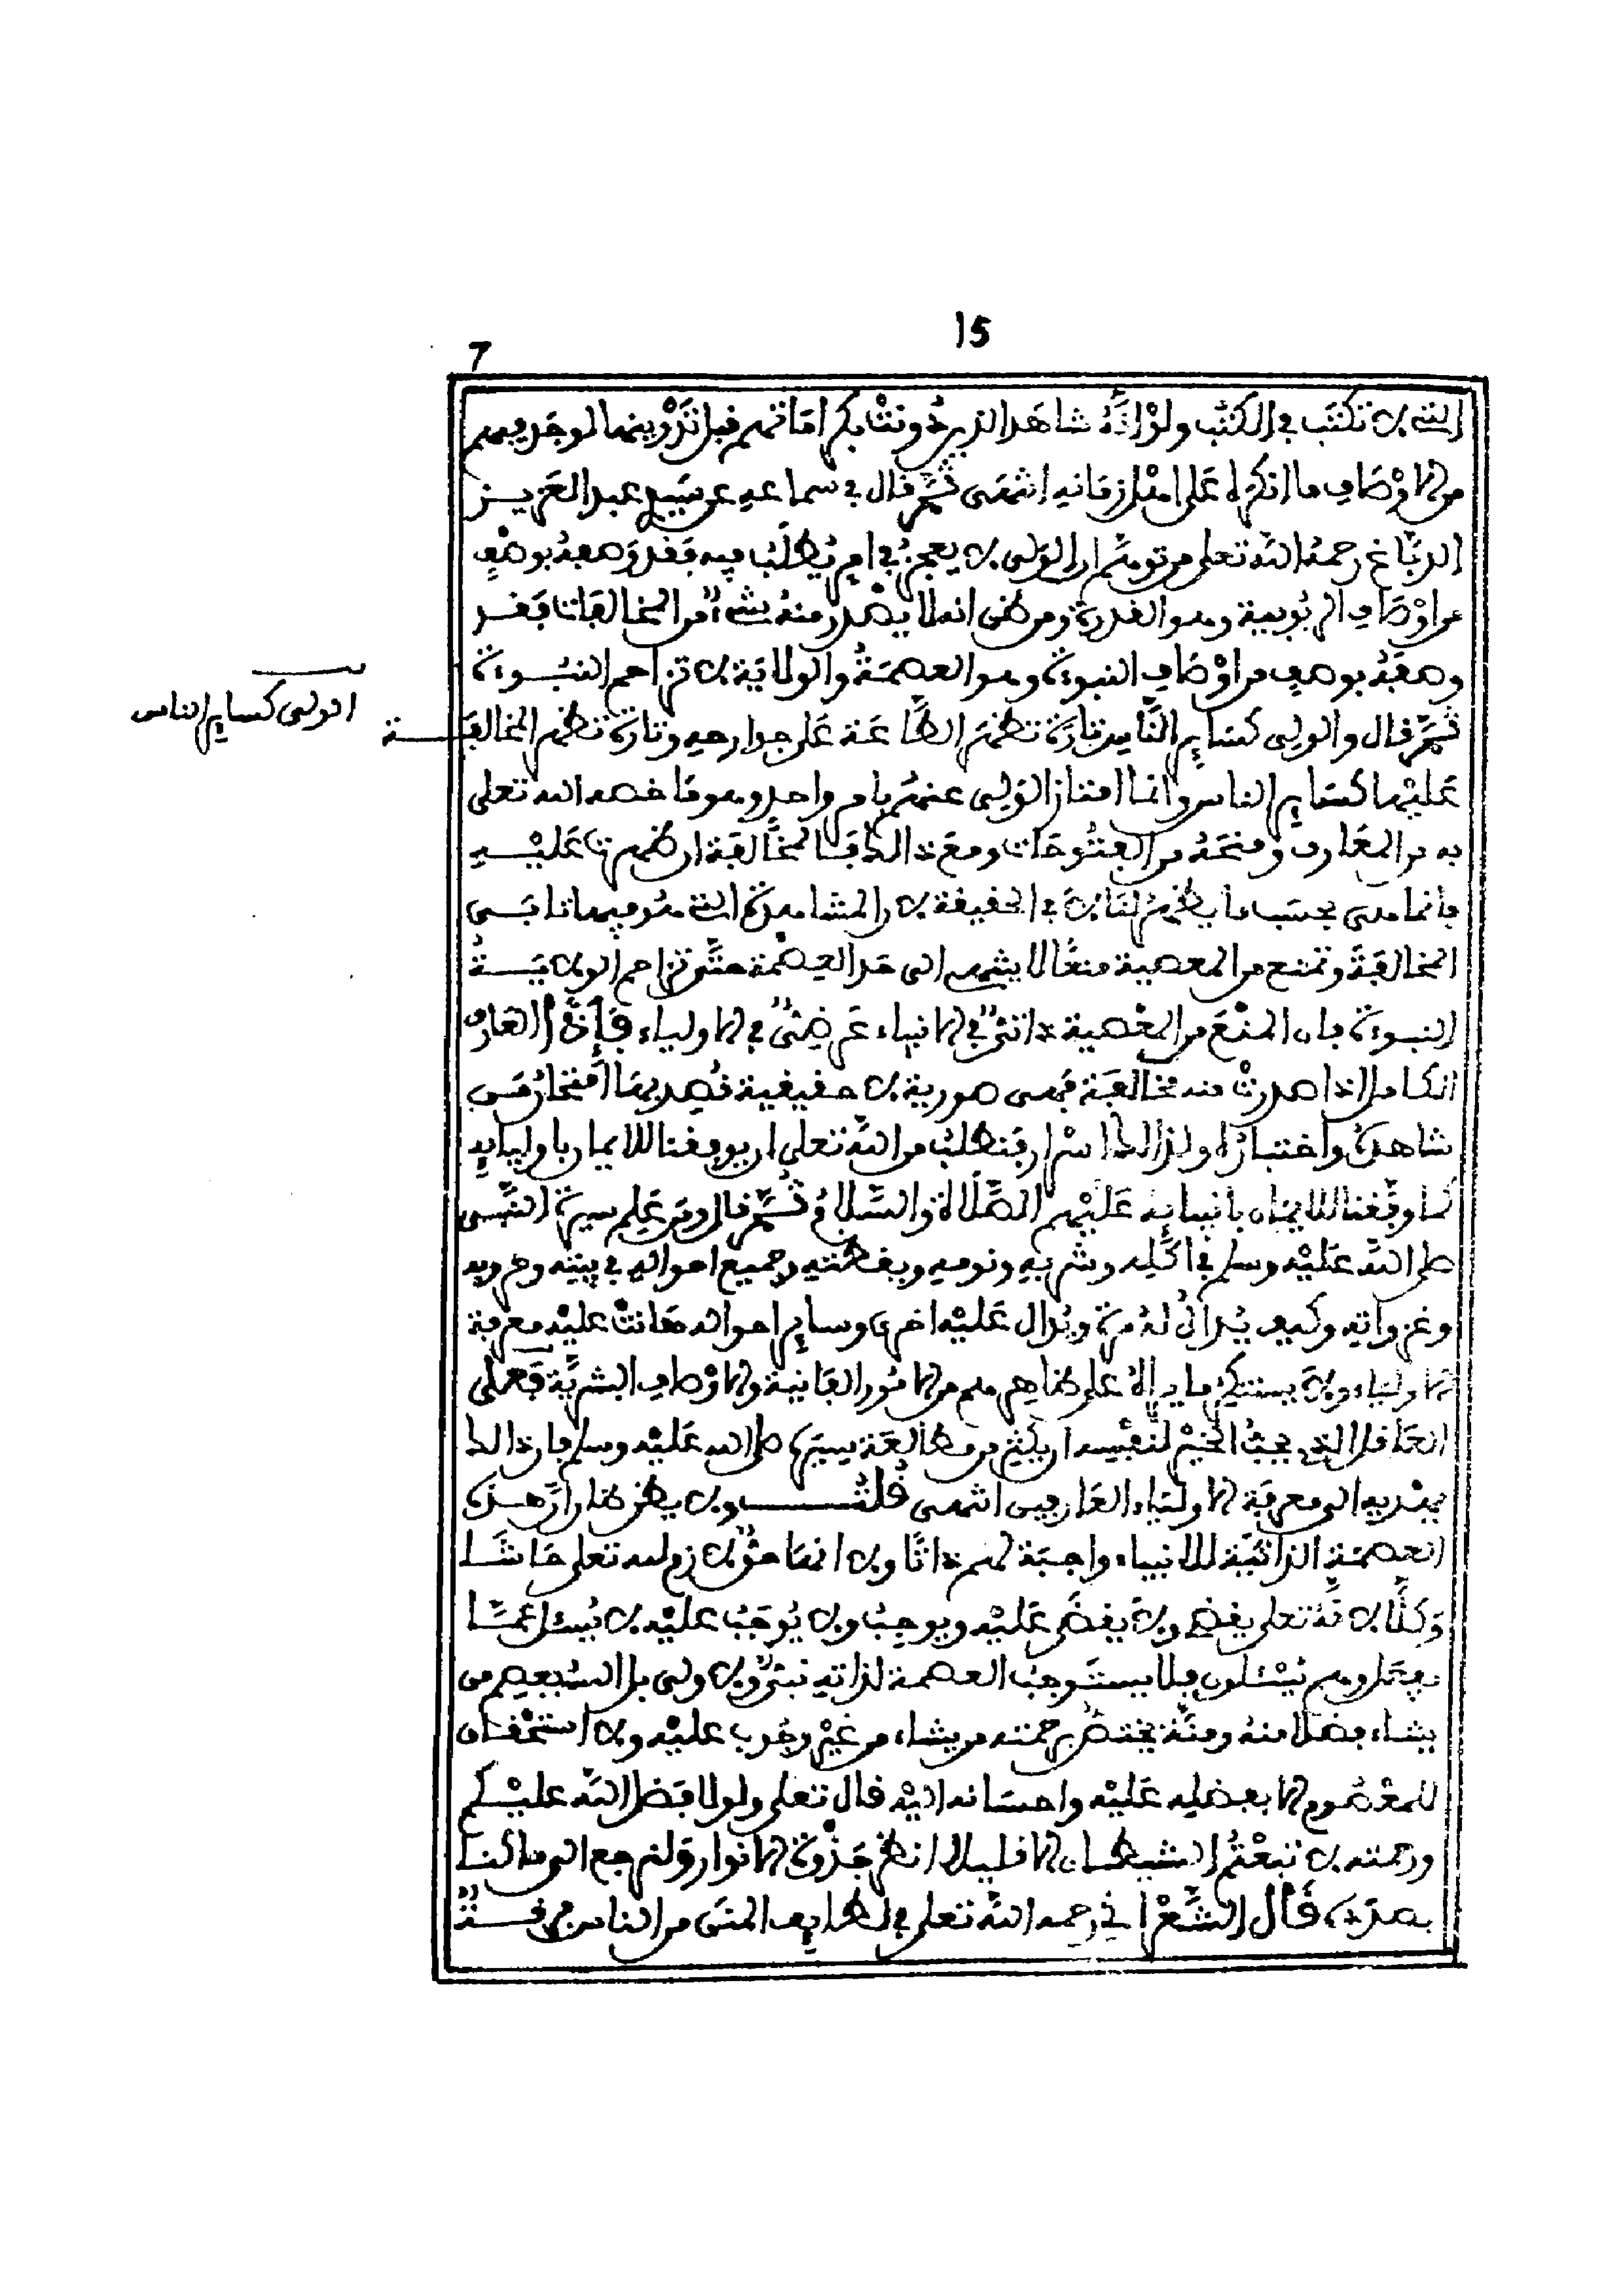 15
7
التي لا تكتب في الكتب ولوْ انَّهُ شاهَد الذين دُونتْ بكراماتهم قبل تدْوينها لوجد فيهم
من الاوْصَاف ما انكره على اهْل زمانه انتهى ثمَّ قال في سماعه عن سيّدِ عبد العَزيـز
الدبّاغ رحمهُ اللهُ تعلى من توهَّم ان الوَلى لا يعجزُ في امرٍ يُطلَبُ فيه فقد وَصفهُ بوصْفٍ
من اوْصَاف الربُوبية وهو القدرة ومن ظن انه لا يصْدر منهُ شيءٌ من المخالفات فقـد
وصفَهُ بوصف من اوْصَاف النبوءة وهو العصمَةُ والولايَة لا تزاحم النبُـوءة
ثمَّ قال والولى كسَايرِ النَّاس تارَة تظهرُ الطَّاعَة عَلى جوارحه وتارَة تظهر المخالفَـة
الولى كساير الناس
عَليْها كسَايرِ الناس وانما امتازَ الوَلى عنهمُ بامر واحدٍ وهو مَا خصه الله تعلى
به من المعَارف ومنحَهُ من الفتُوحَات ومعَ ذالك فالمخَالفَة ان ظهرت عَليْـهِ
فانما هى بحسَب ما يظهرُ لنَا لاَ في الحقيقة لان المشاهدة التي هُو فيها تابَـى
المخالفَةَ وتمنع من المعصية منعًا لا ينتهى الى حَد العصْمة حتَّى تزاحم الولايَـةُ
النبوءة فان المنْعَ من المعْصية ذاتىٌّ في الانبياء عَرضِىٌّ في الاولياء فَإِذًا العَارف
الكامل اذا صدرتْ منه مخالفَة فهى صورية لا حقيقية قُصد بهَا امْتحَانُ مَـن
شاهدَهُ واختبارُهُ ولذالك اسْرار فنطلبُ من اللهَ تعلى ان يوفقنا للايمان باوليايه
كما وفَّقنا للايمان بانبيايه عَليْهم الصَّلاة والسَّلامُ ثمَّ قال ومَن عَلِم سيرة النَّبـى
صلى اللهُ عَليْه وسلم في اكْلِه وشرْبه ونومه ويقظته وجميع احواله في بيته وحروبه
وغزواتِه وكيف يُدالُ لهُ مرة ويُدال عَليْه اخرى وساير احواله هَانتْ عليْه معرفة
الاولياء ولاَ يستنكِر ما يراهُ على ظاهرهم من الامُور الفَانية والاوْصاف البشريَّة فعَلى
العَاقل الذى يحبُّ الخيْر لنفْسِه ان يكْثر من مطالعَة سيرته صلى الله عَليْه وسلم فان ذالك
يهْديه الى معرفَة الاوليَاء العَارفين انتهى قُلتُ ولا يظن ظان انَّ هـذه
العصْمَة الذاتيَّة للانبياء واجبَة لهم ذاتًا ولا انهَا حقٌّ لازم لله تعلى حَاشَـا
وَكلَّا لانَّهُ تعلى يقضى ولاَ يقضَى عَليْه ويوجبُ ولا يُوجَبُ عليْه لا يُسْئَلُ عَمَّـا
يفعَل وهم يُسْئلُون فلا يستَوجبُ العصمة لذاته نبىٌّ ولا ولى بل الله يعصم من
يشاء فضلا منه ومنَّة يختصُّ برحمته من يشاء من غيْر وجُوب عليْه ولا استحْقاق
للمعْصُوم الا بفضله عَليْه واحسَانه اليْه قال تعلى ولولا فَضل اللَّه عليْـكم
ورحمته لاتبعْتُم الشيطـان الا قليلا انظر جَذْوةَ الانوار وَلنرجع الى ما كنـا
بصدَده قَال الشَّعْرانى رحمه اللهُ تعلى في لطايف المنَن من الناس فرقـة